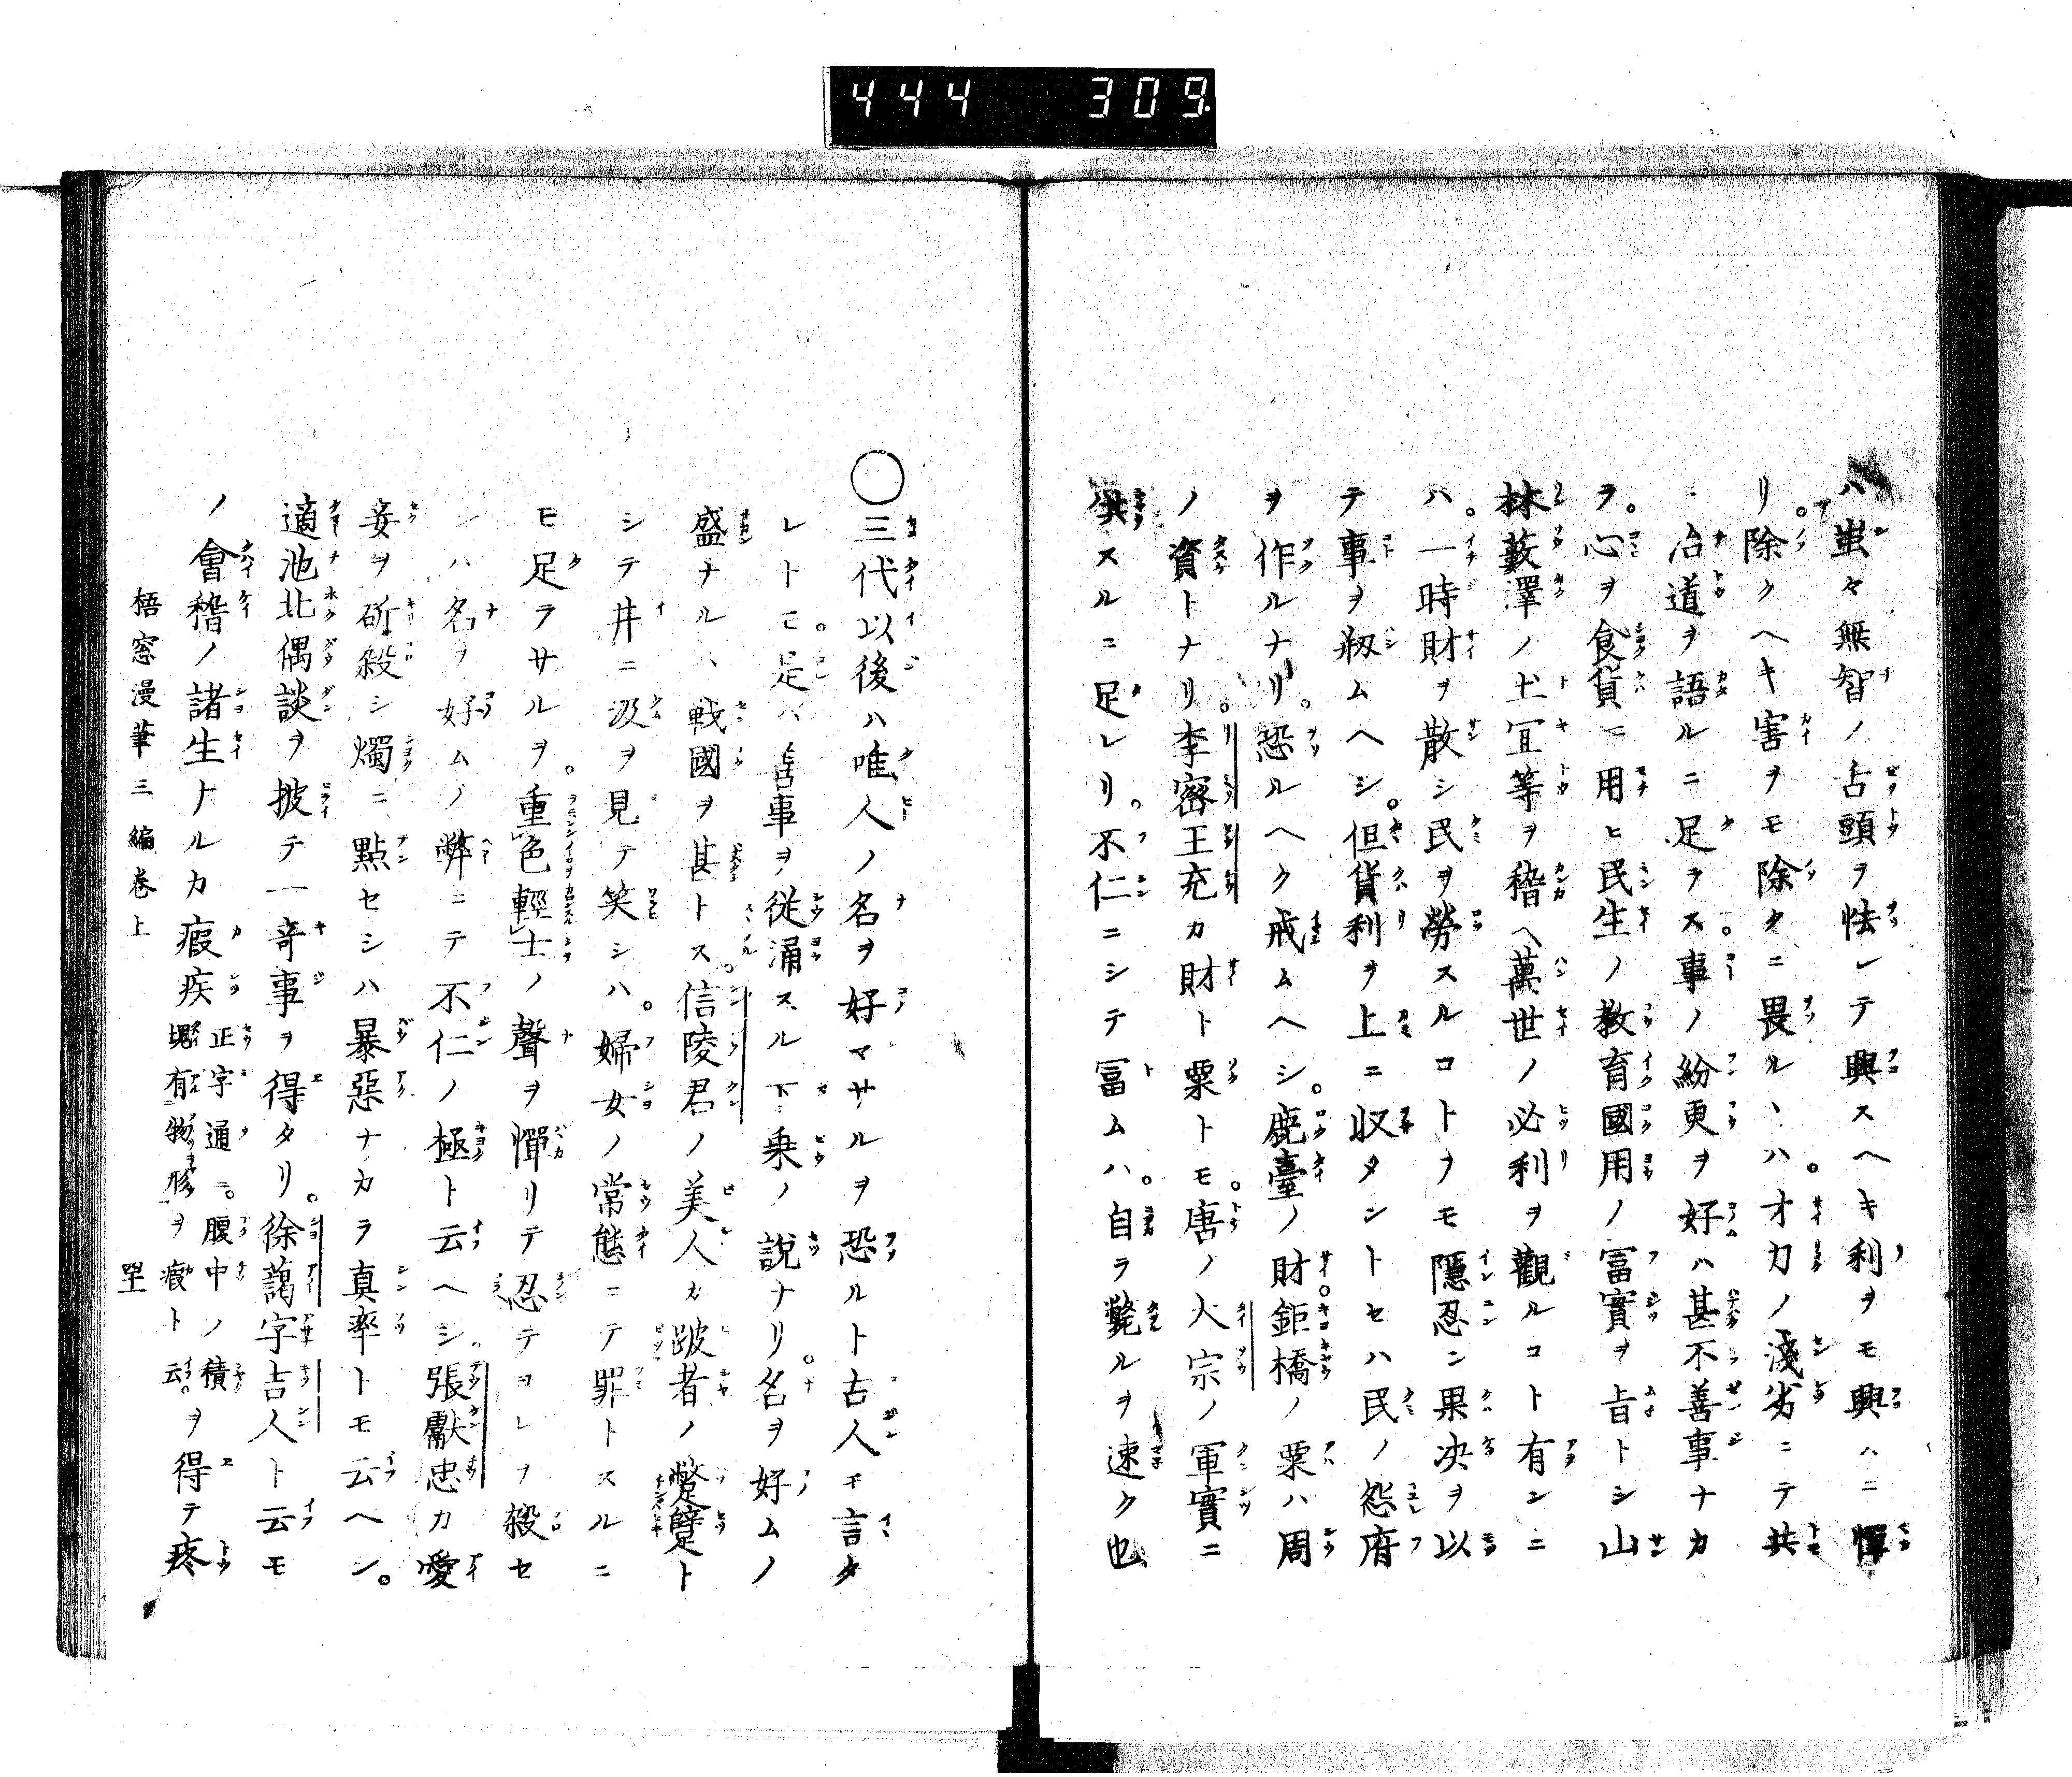 444 309
ハ蚩々無智ノ舌頭ヲ怯レテ興スヘキ利ヲモ興ハニ憚
リ。除クヘキ害ヲモ除クニ畏ルヽハ。才力ノ淺劣ニテ共
ニ治道ヲ語ルニ足ヲス。事ノ紛更ヲ好ハ甚不善事ナカ
ヲ。心ヲ食貨ニ用ヒ民生ノ教育國用ノ冨實ヲ旨トシ山
林藪澤ノ土宜等ヲ稽ヘ萬世ノ必利ヲ觀ルコト有ンニ
ハ。一時財ヲ散シ民ヲ勞スルコトヲモ隱忍ン果决ヲ以
テ事ヲ剏ムヘシ。但貨利ヲ上ニ収タントセハ民ノ怨府
ヲ作ルナリ。恐ルヘク戒ムヘシ。鹿臺ノ財。鉅橋ノ粟ハ周
ノ資トナリ。李密王充カ財ト粟トモ。唐ノ太宗ノ軍實ニ
供スルニ足レリ。不仁ニシテ冨ムハ。自ラ斃ルヲ速ク也
〇三代以後ハ唯人ノ名ヲ好マサルヲ恐ルト古人モ言タ
レトモ。是ハ善事ヲ從涌スル下乗ノ說ナリ。名ヲ好ムノ
盛ナルハ戰國ヲ甚トス。信陵君ノ美人カ跛者ノ蹩躄ト
シテ井ニ汲ヲ見テ笑シハ。婦女ノ常態ニテ罪トスルニ
モ足ラサルヲ。重色輕士ノ聲ヲ憚リテ忍テヲレヲ殺セ
シハ名ヲ好ムノ弊ニテ不仁ノ極ト云ヘシ。張獻忠カ愛
妾ヲ斫殺シ燭ニ點セシハ暴惡ナカラ真率トモ云ヘシ。
適池北偶談ヲ披テ一竒事ヲ得タリ。徐藹字吉人ト云モ
ノ會稽ノ諸生トナルカ瘕疾正字通ニ。腹中ノ積塊有物形ヲ瘕ト云。ヲ得テ疼
梧窓漫筆三編卷上